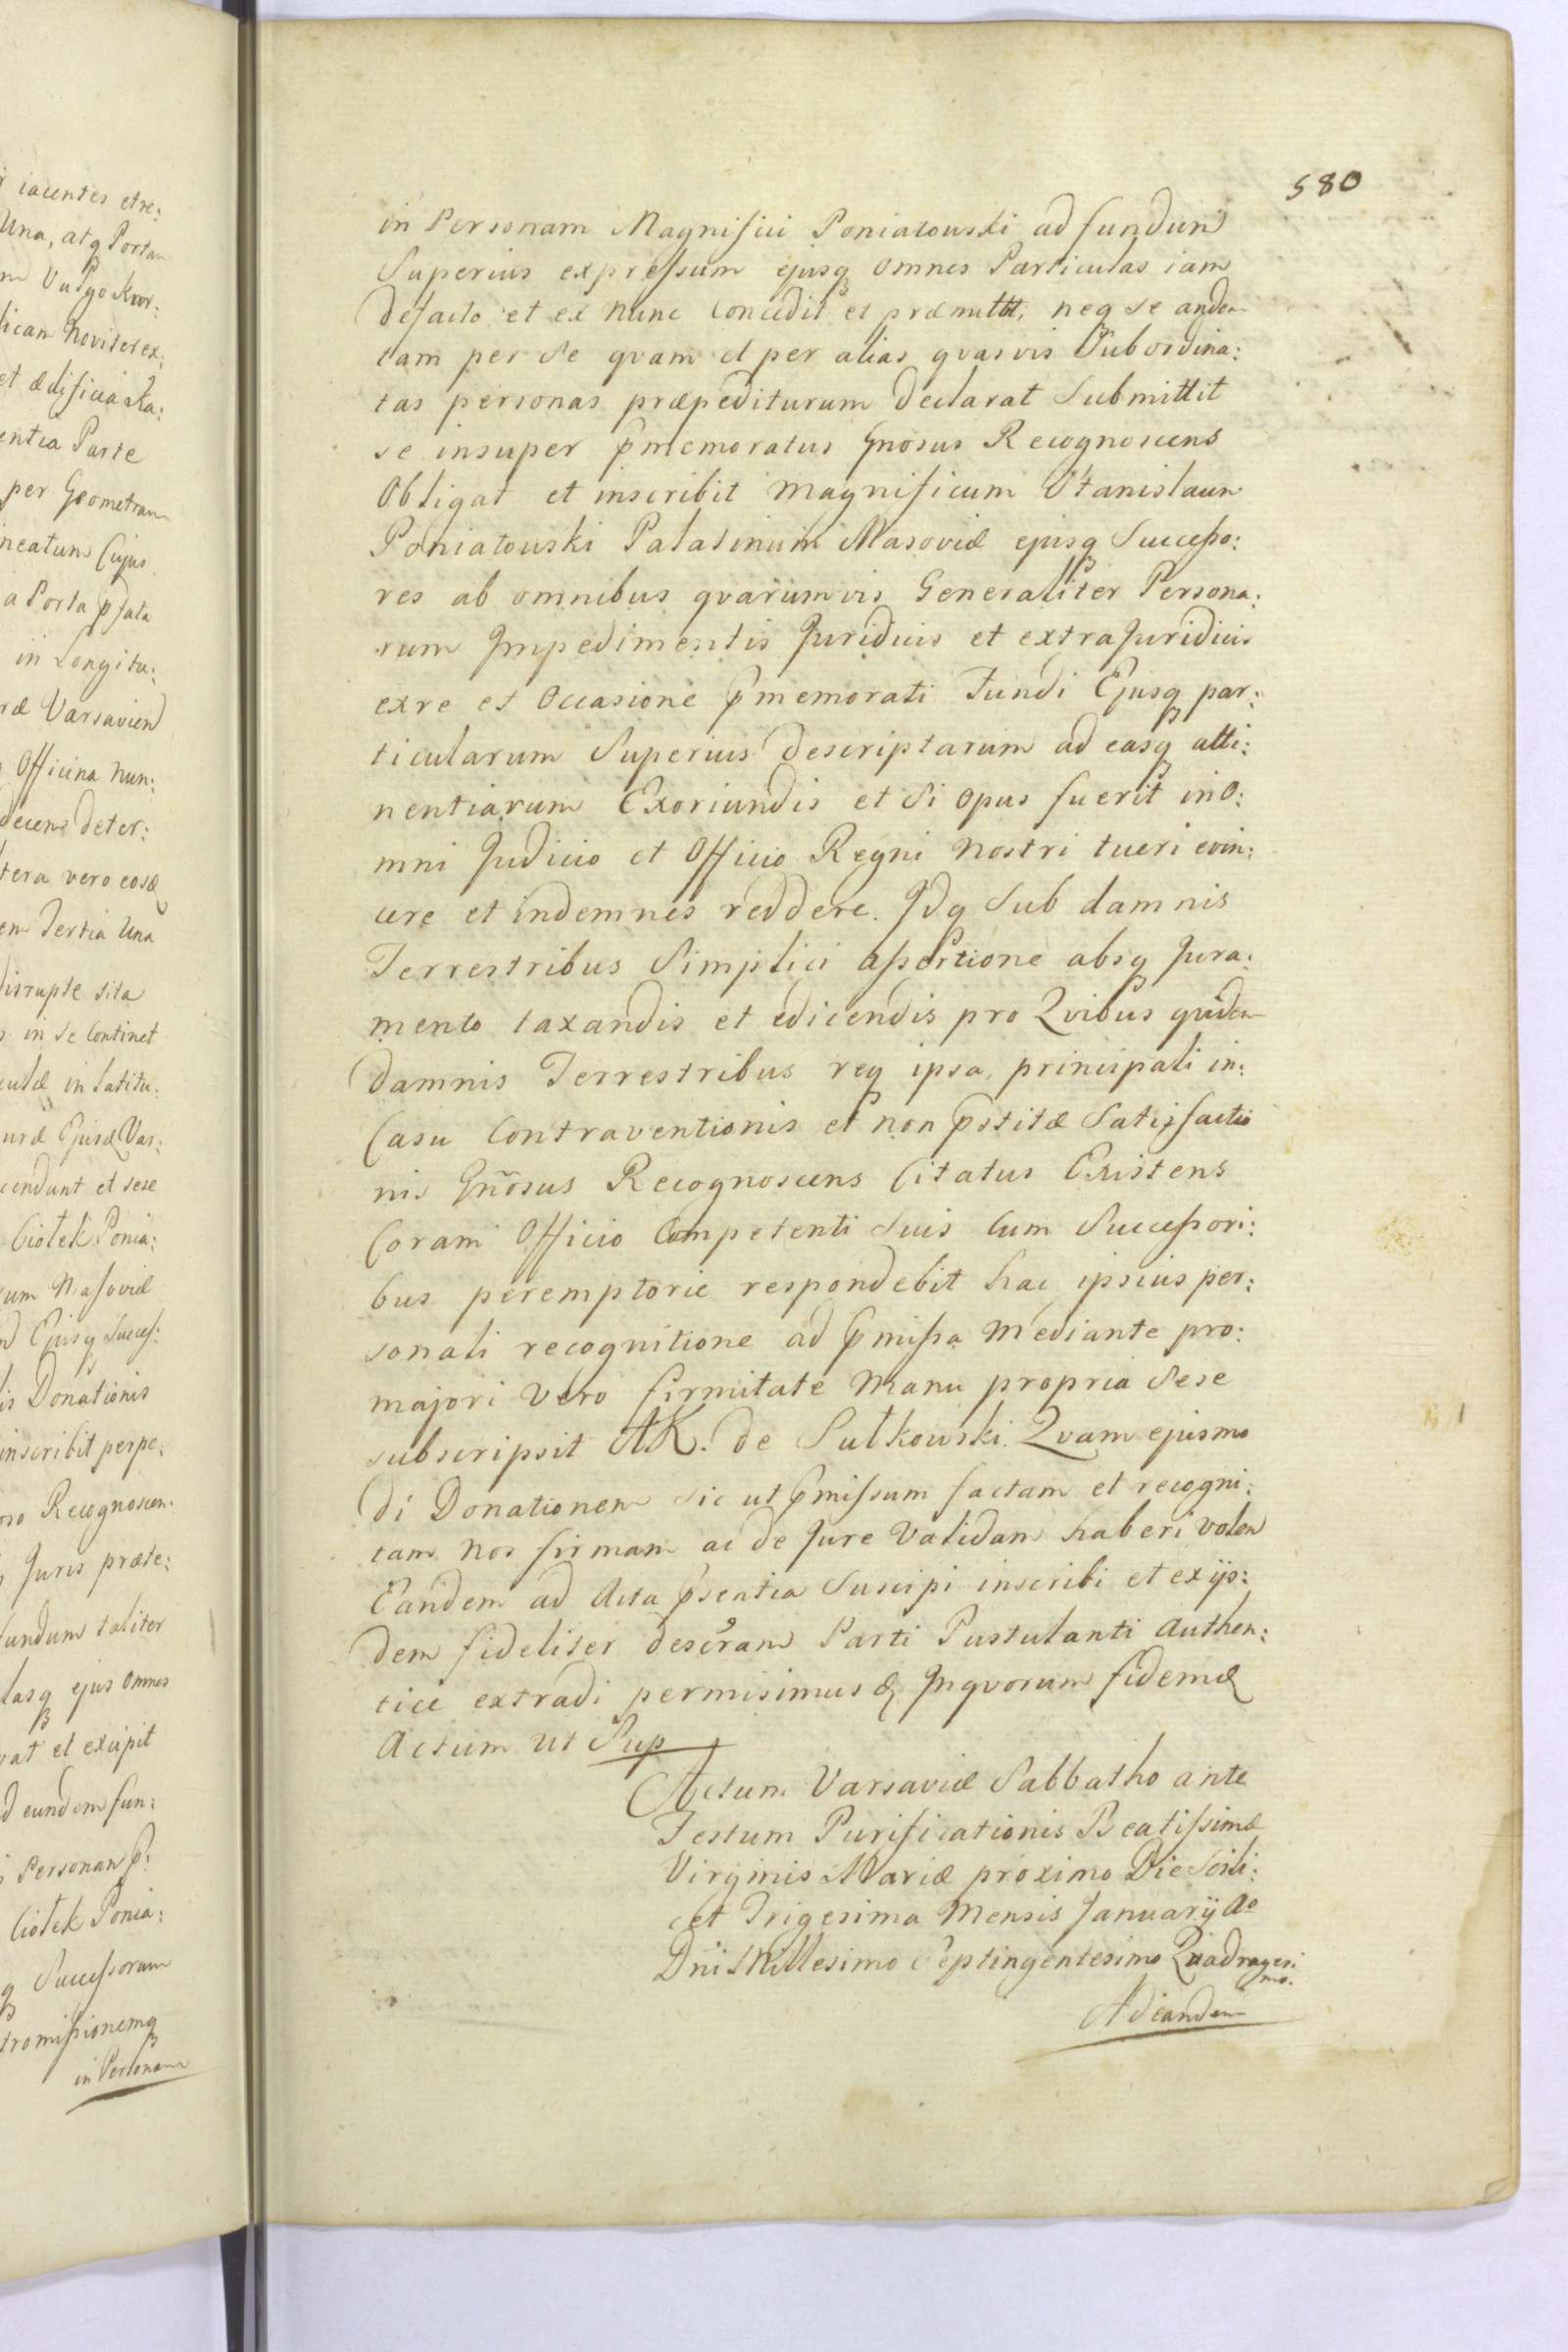 iacentes etre:
Una, atq Portam
Vulgo Kor:
lican noviter ex:
et ædificia Ra:
entia Parte
per Geometram
neatum Cujus
a Porta p̄fata
in Longitu:
ræ Varsavien
Officina nun:
decem deter:
tera vero eosd
em Tertia Una
disrupte sita
in se Continet
culæ in latitu:
uræ Ejusd Var:
cendunt et sese
Ciołek Ponia:
um Masoviæ
Ejusq Success:
is Donationis
inscribit perpe:
oso Recognoscen:
Juris præte:
fundum taliter
lasq ejus Omnes
vat et excipit
d eundem fun:
Personam p̄:
Ciołek Ponia:
q Successorum
tromissionemq
in Personam
580
in Personam Magnifici Poniatouski ad fundum
Superius expressum ejusq omnes Particulas iam
defacto et ex nunc Concedit et præmittit, neq se andem
tam per se qvam et per alias qvasvis Subordina:
tas personas præpediturum declarat Submittit
se insuper p̄memoratus Gnosus Recognoscens
Obligat et inscribit Magnificum Stanislaum
Poniatouski Palatinum Masoviæ ejusq Successo:
res ab omnibus qvarumvis Generaliter Persona:
rum Impedimentis Juridicis et extraJuridicis
exre et Occasione p̄memorati Fundi Ejusq par:
ticularum Superius descriptarum ad easq atti:
nentiarum Exoriundis et Si opus fuerit in O:
mni Judicio et Officio Regni Nostri tueri evin:
cere et indemnes reddere. Idq Sub damnis
Terrestribus Simplici assertione absq Jura:
mento taxandis et edicendis pro Qvibus qvidem
damnis Terrestribus req ipsa principali in:
Casu Contraventionis et non p̄stitæ Satisfactio
nis Gñosus Recognoscens Citatus Existens
Coram Officio Competenti Suis Cum Successori:
bus peremptorie respondebit hac ipsius per:
sonali recognitione ad p̄missa Mediante pro:
majori Vero firmitate Manu propria Sese
subscripsit AK. de Sułkouski. Qvam ejusmo
di Donationem sic ut p̄missum factam et recogni:
tam nos firmam ac de Jure Validam haberi volen
Eandem ad Acta p̄sentia Suscipi inscribi et exijs:
dem fideliter descr̄am Parti Pustulanti Authen:
tice extradi permisimus & Inqvorum fidem &
Actum ut Sup
Actum Varsaviæ Sabbatho ante
Festum Purificationis Beatissimæ
Virginis Mariæ proximo Die Scili:
cet Trigesima Mensis Januarij Ao
Dñi Millesimo Septingentesimo Quadragesi
mo.
Ad eandem